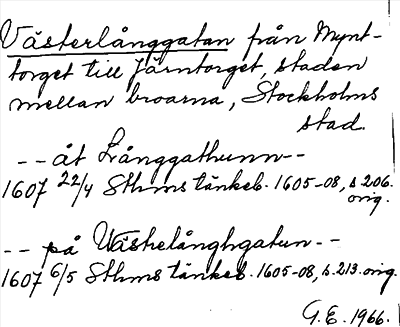 Västerlånggatan från Mynt-
torget till Järntorget, staden
mellan broarna, Stockholms
stad.
-- åt Långgathunn --
1607 22/4 Sthms tänkeb. 1605-08, s. 206.
orig.
-- på Wästrelånghgatun --
1607 6/5 Sthms tänkeb. 1605-08, s. 213. orig.
G. E. 1966.